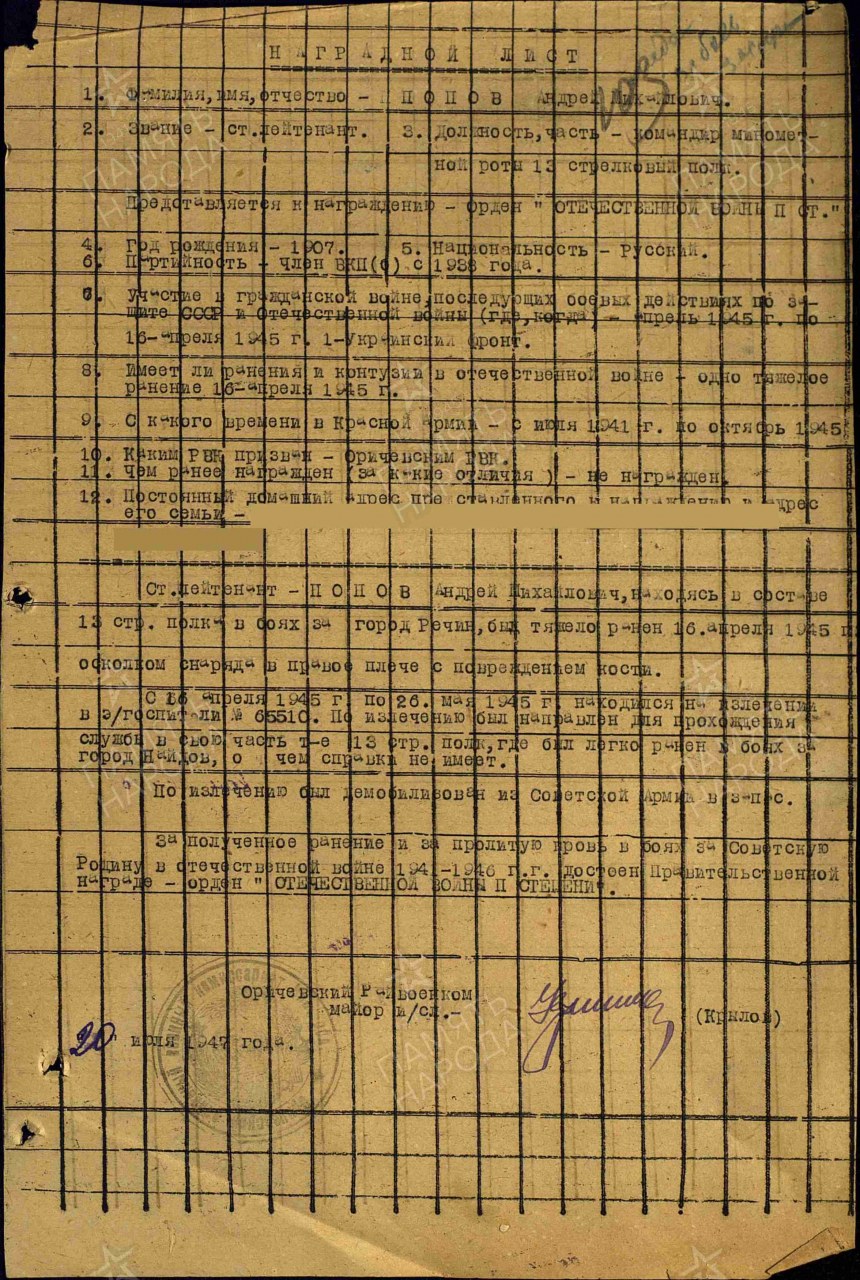 НАГРАДНОЙ ЛИСТ
1. Фамилия, имя, отчество - ПОПОВ Андрей Михайлович.
2. Звание - ст.лейтенант. 3. Должность, часть - командир миномет-
ной роты 13 стрелковый полк.
Представляется к награждению - орден " ОТЕЧЕСТВЕННОЙ ВОЙНЫ П СТ."
4. Год рождения - 1907. 5. Национальность - Русский.
6. Партийность - член ВКП(б) с 1938 года.
7. Участие в гражданской войне, последующих боевых действиях по за-
щите СССР и отечественной войны (где, когда) - апрель 1945 г. по
16-апреля 1945 г. 1-Украинский фронт.
8. Имеет ли ранения и контузии в отечественной войне - одно тяжелое
ранение 16-апреля 1945 г.
9. С какого времени в Красной армии - с июля 1941 г. по октябрь 1945
10. Каким РВК призван - Оричевским РВК.
11. Чем ранее награжден (за какие отличия ) - не награжден.
12. Постоянный домашний адрес представленного к награждению и адрес
его семьи -
Ст.лейтенант - ПОПОВ Андрей Михайлович, находясь в составе
13 стр. полка в боях за город Речин, был тяжело ранен 16.апреля 1945 г
осколком снаряда в правое плече с повреждением кости.
С 16 апреля 1945 г. по 26. мая 1945 г. находился на излечении
в э/госпитали № 65510. По излечению был направлен для прохождения
службы в свою часть т-е 13 стр. полк, где был легко ранен в боях за
город Найдов, о чем справки не имеет.
По излечению был демобилизован из Советской Армии в запас.
За полученное ранение и за пролитую кровь в боях за Советскую
Родину в отечественной войне 1941-1946 г.г. достоен Правительственной
награде - орден " ОТЕЧЕСТВЕННОЙ ВОЙНЫ П СТЕПЕНИ".
Оричевский Райвоенком
майор и/сл.- (Крылов)
20 июля 1947 года.
ПАМЯТЬ
НАРОДА